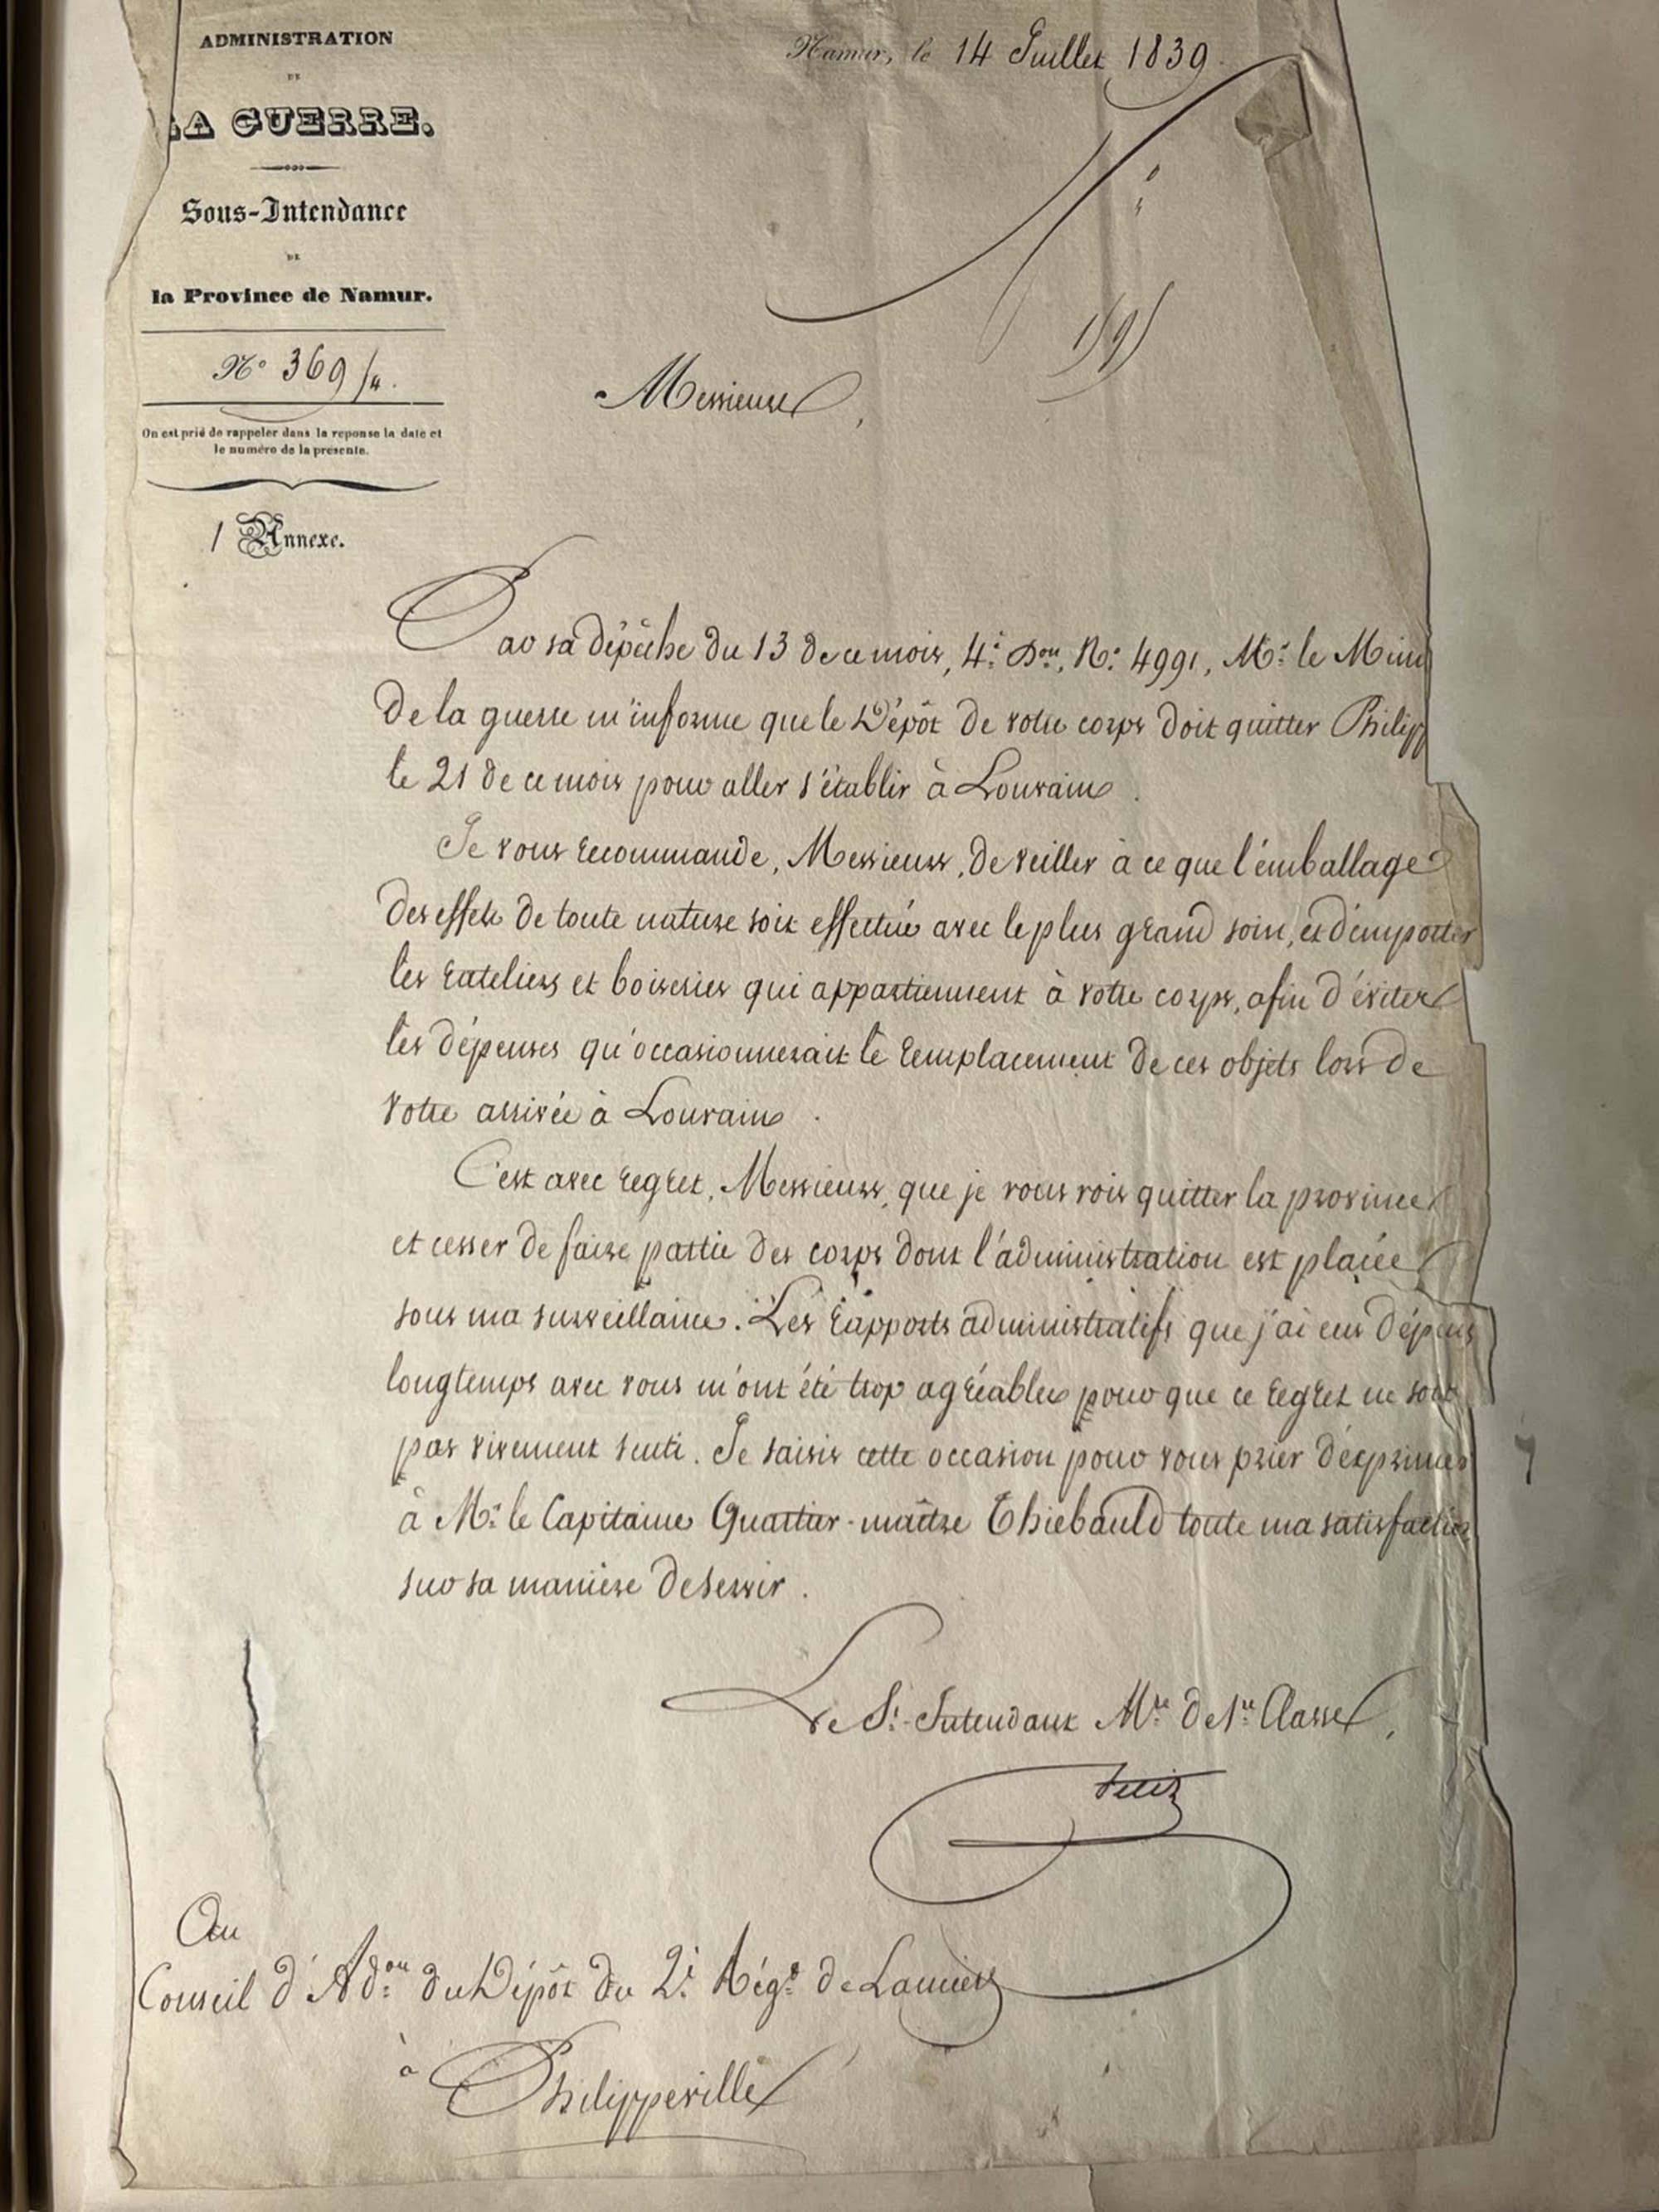 ADMINISTRATION
DE
LA GUERRE.
Sous-Intendance
DE
la Province de Namur.
N° 369/4.
On est prié de rappeler dans la reponse la date et
le numéro de la présente.
1 Annexe.
Namur, le 14 Juillet 1839.
Messieurs,
Par sa dépêche du 13 de ce mois, 4e Don, No 4991, Mr le Minis
De la guerre m'informe que le Dépôt de votre corps doit quitter Philipp
le 21 de ce mois pour aller s'établir à Louvain.
Je vous recommande, Messieurs, de veiller à ce que l'emballage
des effets de toute nature soit effectué avec le plus grand soin, et d'emporter
les rateliers et boiseries qui appartiennent à votre corps, afin d'éviter
les dépenses qu'occasionnerait le remplacement de ces objets lors de
votre arrivée à Louvain.
C'est avec regret, Messieurs, que je vous vois quitter la province
et cesser de faire partie des corps dont l'administration est placée
sous ma surveillance. Les rapports administratifs que j'ai eus dépuis
longtemps avec vous m'ont été trop agréables pour que ce regret ne soit
pas vivement senti. Je saisis cette occasion pour vous prier d'exprimer
à Mr le Capitaine Quartier-maître Thiebauld toute ma satisfaction
sur sa manière de servir.
Le Ss-Intendant Mre de 1re Classe,
Au
Conseil d'Adon du Dépôt du 2e Régt de Lanciers
à Philippeville